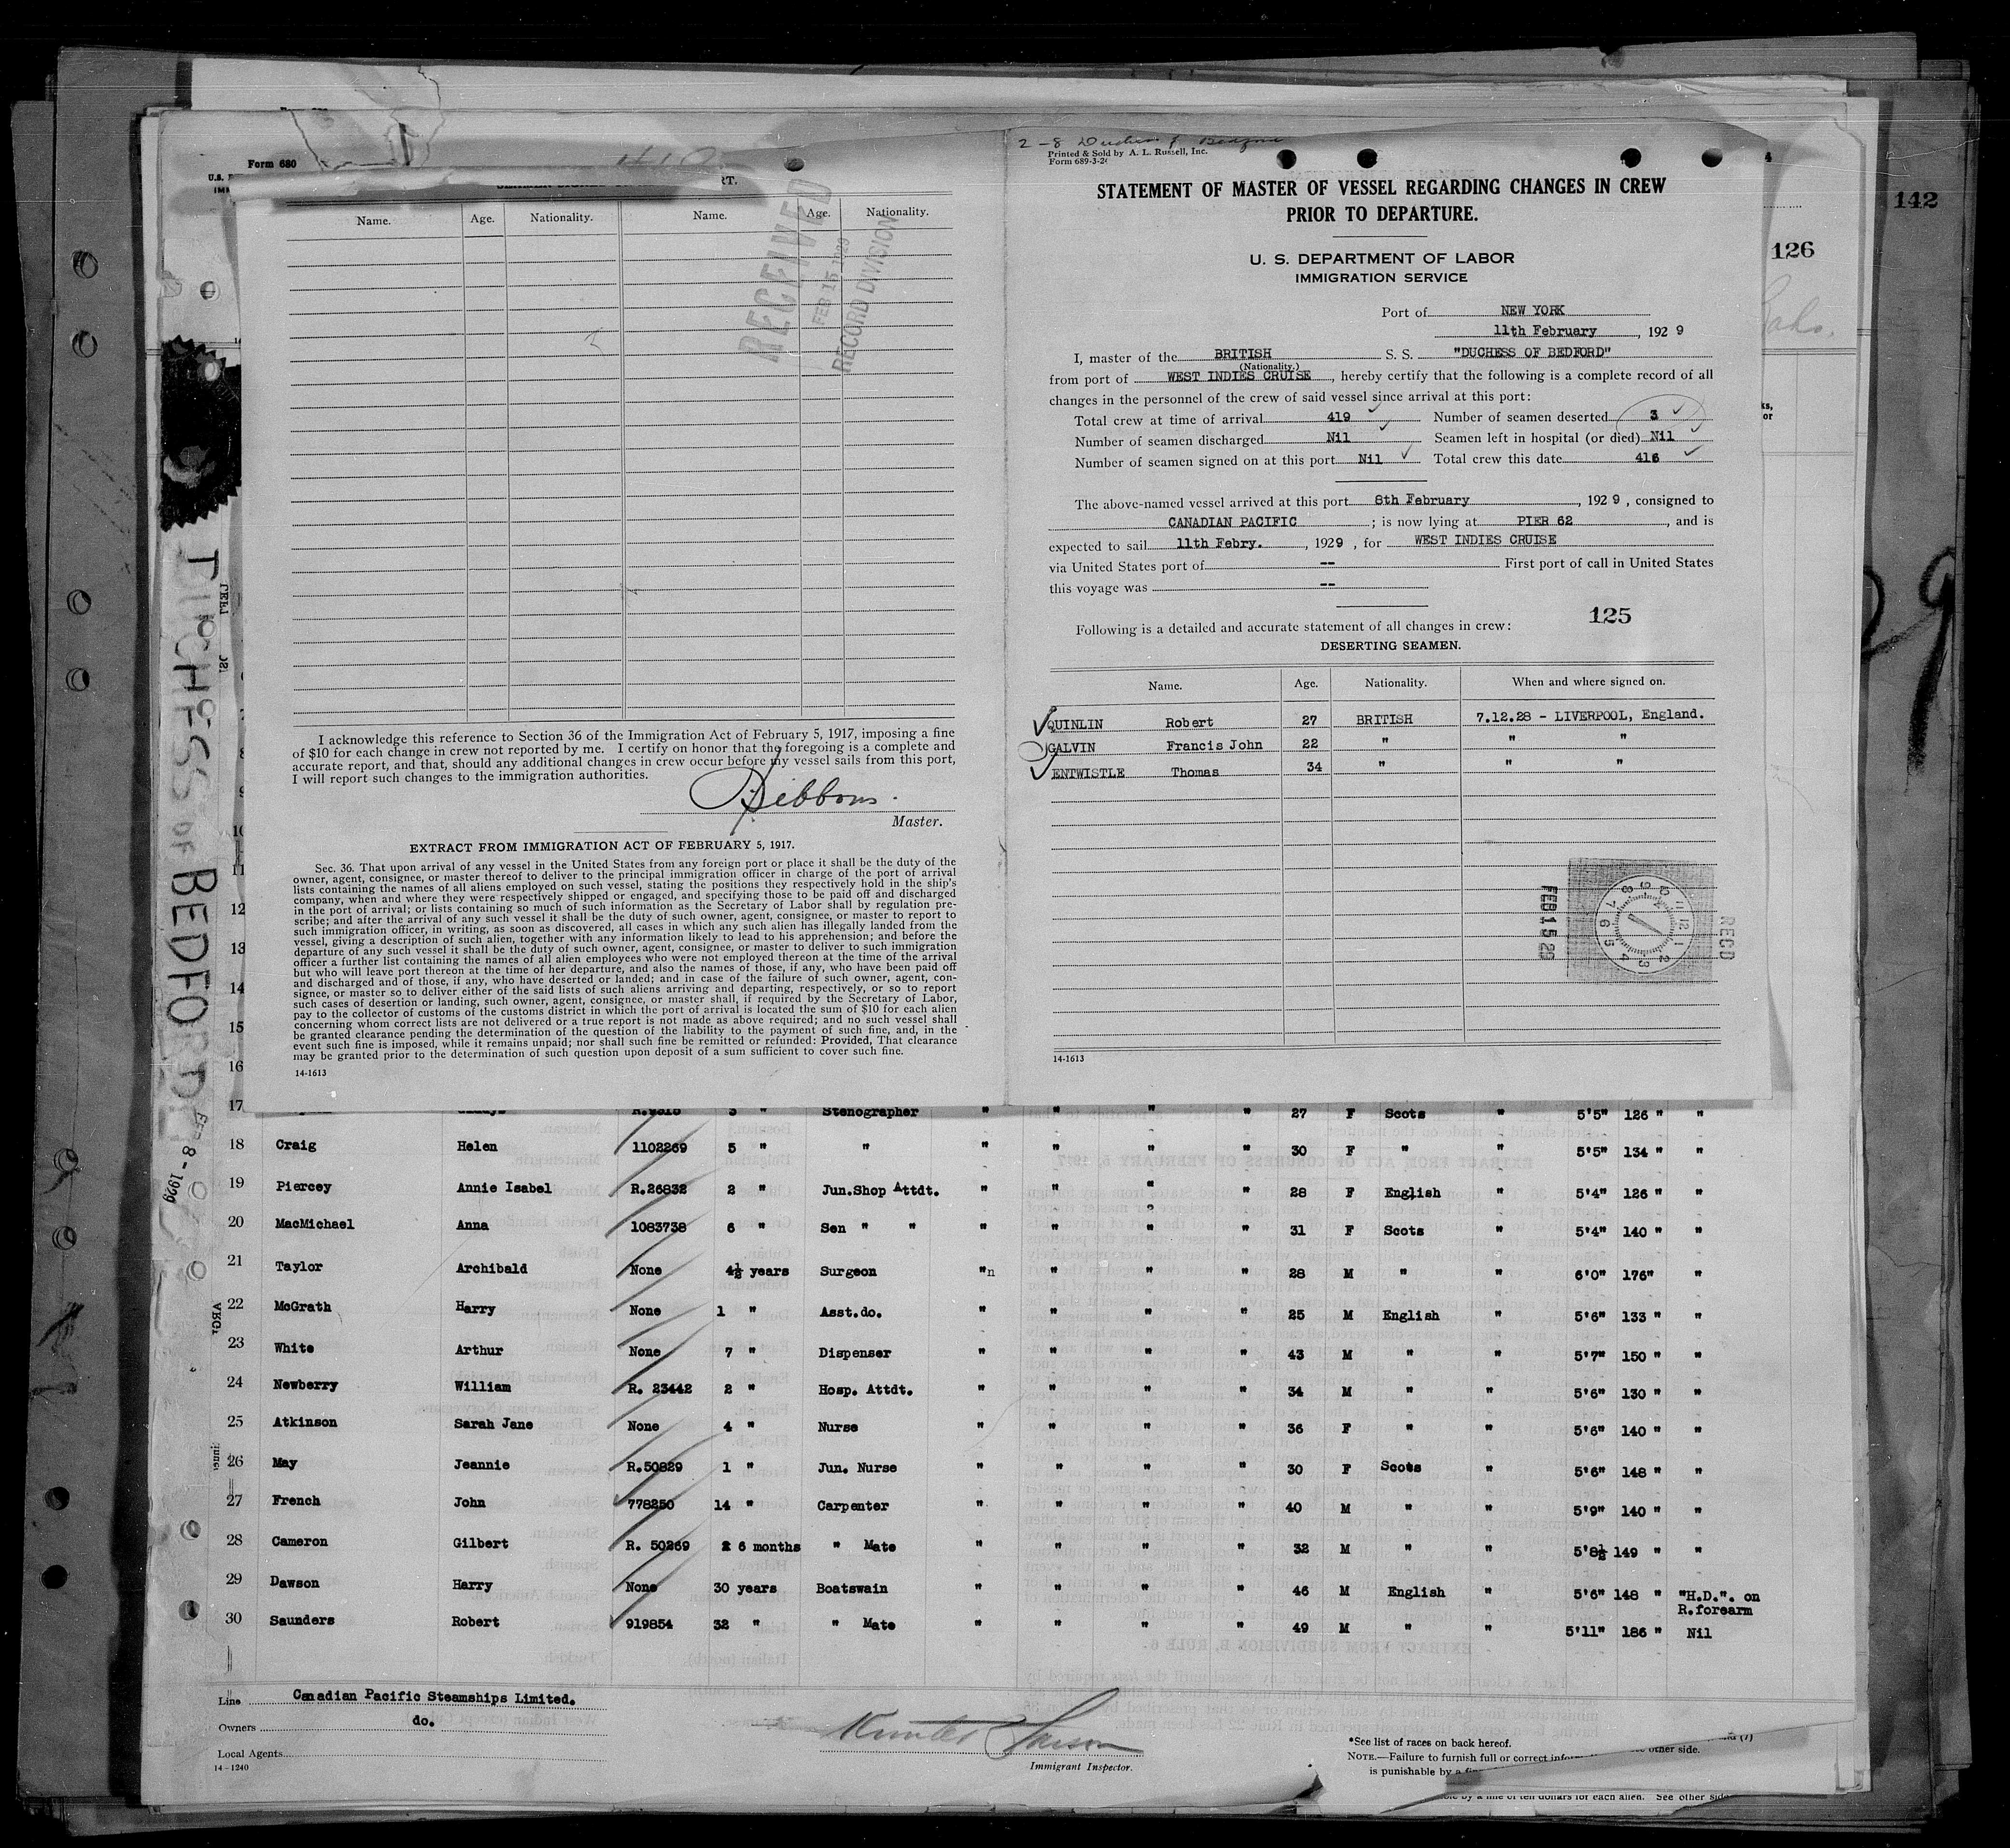 142
126
Form 680
Name. Age. Nationality. Name. Age. Nationality.
RECEIVED
FEB 15 1929
RECORD DIVISION
I acknowledge this reference to Section 36 of the Immigration Act of February 5, 1917, imposing a fine
of $10 for each change in crew not reported by me. I certify on honor that the foregoing is a complete and
accurate report, and that, should any additional changes in crew occur before my vessel sails from this port,
I will report such changes to the immigration authorities.
Gibbons.
Master.
EXTRACT FROM IMMIGRATION ACT OF FEBRUARY 5, 1917.
Sec. 36. That upon arrival of any vessel in the United States from any foreign port or place it shall be the duty of the
owner, agent, consignee, or master thereof to deliver to the principal immigration officer in charge of the port of arrival
lists containing the names of all aliens employed on such vessel, stating the positions they respectively hold in the ship's
company, when and where they were respectively shipped or engaged, and specifying those to be paid off and discharged
in the port of arrival; or lists containing so much of such information as the Secretary of Labor shall by regulation pre-
scribe; and after the arrival of any such vessel it shall be the duty of such owner, agent, consignee, or master to report to
such immigration officer, in writing, as soon as discovered, all cases in which any such alien has illegally landed from the
vessel, giving a description of such alien, together with any information likely to lead to his apprehension; and before the
departure of any such vessel it shall be the duty of such owner, agent, consignee, or master to deliver to such immigration
officer a further list containing the names of all alien employees who were not employed thereon at the time of the arrival
but who will leave port thereon at the time of her departure, and also the names of those, if any, who have been paid off
and discharged and of those, if any, who have deserted or landed; and in case of the failure of such owner, agent, con-
signee, or master so to deliver either of the said lists of such aliens arriving and departing, respectively, or so to report
such cases of desertion or landing, such owner, agent, consignee, or master shall, if required by the Secretary of Labor,
pay to the collector of customs of the customs district in which the port of arrival is located the sum of $10 for each alien
concerning whom correct lists are not delivered or a true report is not made as above required; and no such vessel shall
be granted clearance pending the determination of the question of the liability to the payment of such fine, and, in the
event such fine is imposed, while it remains unpaid; nor shall such fine be remitted or refunded: Provided, That clearance
may be granted prior to the determination of such question upon deposit of a sum sufficient to cover such fine.
14-1613
2-8 Duchess of Bedford
Printed & Sold by A. L. Russell, Inc.
Form 689-3-26
STATEMENT OF MASTER OF VESSEL REGARDING CHANGES IN CREW
PRIOR TO DEPARTURE.
U. S. DEPARTMENT OF LABOR
IMMIGRATION SERVICE
Port of NEW YORK
11th February, 1929
I, master of the BRITISH S. S. "DUCHESS OF BEDFORD"
(Nationality.)
from port of WEST INDIES CRUISE, hereby certify that the following is a complete record of all
changes in the personnel of the crew of said vessel since arrival at this port:
Total crew at time of arrival 419 Number of seamen deserted 3
Number of seamen discharged Nil Seamen left in hospital (or died) Nil
Number of seamen signed on at this port Nil Total crew this date 416
The above-named vessel arrived at this port 8th February, 1929, consigned to
CANADIAN PACIFIC; is now lying at PIER 62, and is
expected to sail 11th Febry., 1929, for WEST INDIES CRUISE
via United States port of -- First port of call in United States
this voyage was --
125
Following is a detailed and accurate statement of all changes in crew:
DESERTING SEAMEN.
Name. Age. Nationality. When and where signed on.
QUINLIN Robert 27 BRITISH 7.12.28 - LIVERPOOL, England.
GALVIN Francis John 22 " " "
ENTWISTLE Thomas 34 " " "
FEB 15 29
RECD
14-1613
DUCHESS OF BEDFORD
FEB 8-1929
17 Stenographer " " " " 27 F Scots " 5'5" 126 " "
18 Craig Helen 1102269 5 " " " " " " 30 F " " 5'5" 134 " "
19 Piercey Annie Isabel R.26832 2 " Jun.Shop Attdt. " " " " 28 F English " 5'4" 126 " "
20 MacMichael Anna 1083738 6 " Sen " " " " " " 31 F Scots " 5'4" 140 " "
21 Taylor Archibald None 4½ years Surgeon "n " " " 28 M " " 6'0" 176" "
22 McGrath Harry None 1 " Asst.do. " " " " 25 M English " 5'6" 133 " "
23 White Arthur None 7 " Dispenser " " " " 43 M " " 5'7" 150 " "
24 Newberry William R. 23442 2 " Hosp. Attdt. " " " " 34 M " " 5'6" 130 " "
25 Atkinson Sarah Jane None 4 " Nurse " " " " 36 F " " 5'6" 140 " "
26 May Jeannie R.50829 1 " Jun. Nurse " " " " 30 F Scots " 5'6" 148 " "
27 French John 778250 14 " Carpenter " " " " 40 M " " 5'9" 140 " "
28 Cameron Gilbert R. 50269 6 months " Mate " " " " 32 M " " 5'8½ 149 " "
29 Dawson Harry None 30 years Boatswain " " " " 46 M English " 5'6" 148 " "H.D.". on
R.forearm
30 Saunders Robert 919854 32 " " Mate " " " " 49 M " " 5'11" 186 " Nil
Line Canadian Pacific Steamships Limited.
Owners do.
Local Agents
14-1240
Immigrant Inspector.
*See list of races on back hereof.
NOTE.—Failure to furnish full or correct other side.
is punishable by a
of ten dollars for each alien. See other side